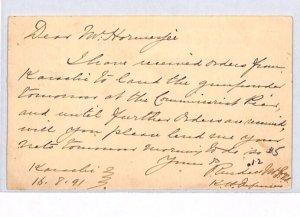 Dear Mr Hormusjee
I have received orders from
Karachi to land the gunpowder
tomorrow at the Commissariat Pier,
and until further Orders are received,
will you please lend me your
tomorrow morning to do
Yours
Karachi
16.8.91